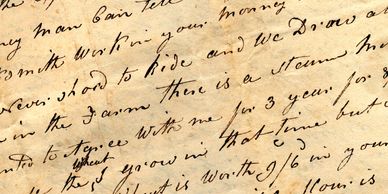 the
ney man Can tell
Smith work in your money
Never shod to Ride and We Draw al
in the Farm there is a steam
nted to Agree With me for 3 year for
what
the I grow in that time but
is Worth 9/6 in your
flour is